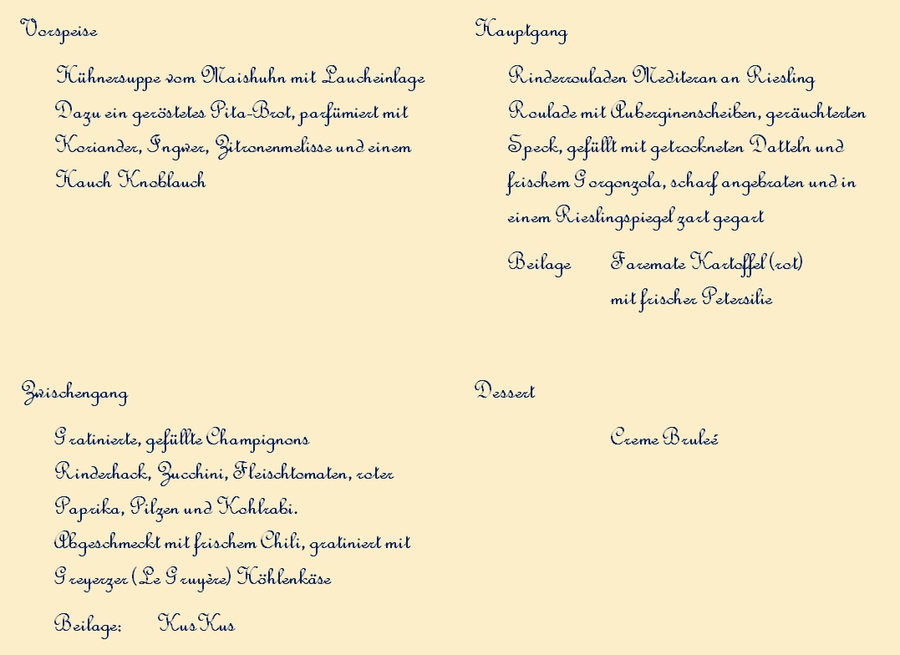 Vorspeise
Hühnersuppe vom Maishuhn mit Laucheinlage
Dazu ein geröstetes Pita-Brot, parfümiert mit
Koriander, Ingwer, Zitronenmelisse und einem
Hauch Knoblauch
Zwischengang
Gratinierte, gefüllte Champignons
Rinderhack, Zucchini, Fleischtomaten, roter
Paprika, Pilzen und Kohlrabi.
Abgeschmeckt mit frischem Chili, gratiniert mit
Greyerzer (Le Gruyère) Höhlenkäse
Beilage: KusKus
Hauptgang
Rinderrouladen Mediteran an Riesling
Roulade mit Auberginenscheiben, geräuchterten
Speck, gefüllt mit getrockneten Datteln und
frischem Gorgonzola, scharf angebraten und in
einem Rieslingspiegel zart gegart
Beilage Faremate Kartoffel (rot)
mit frischer Petersilie
Dessert
Creme Bruleé